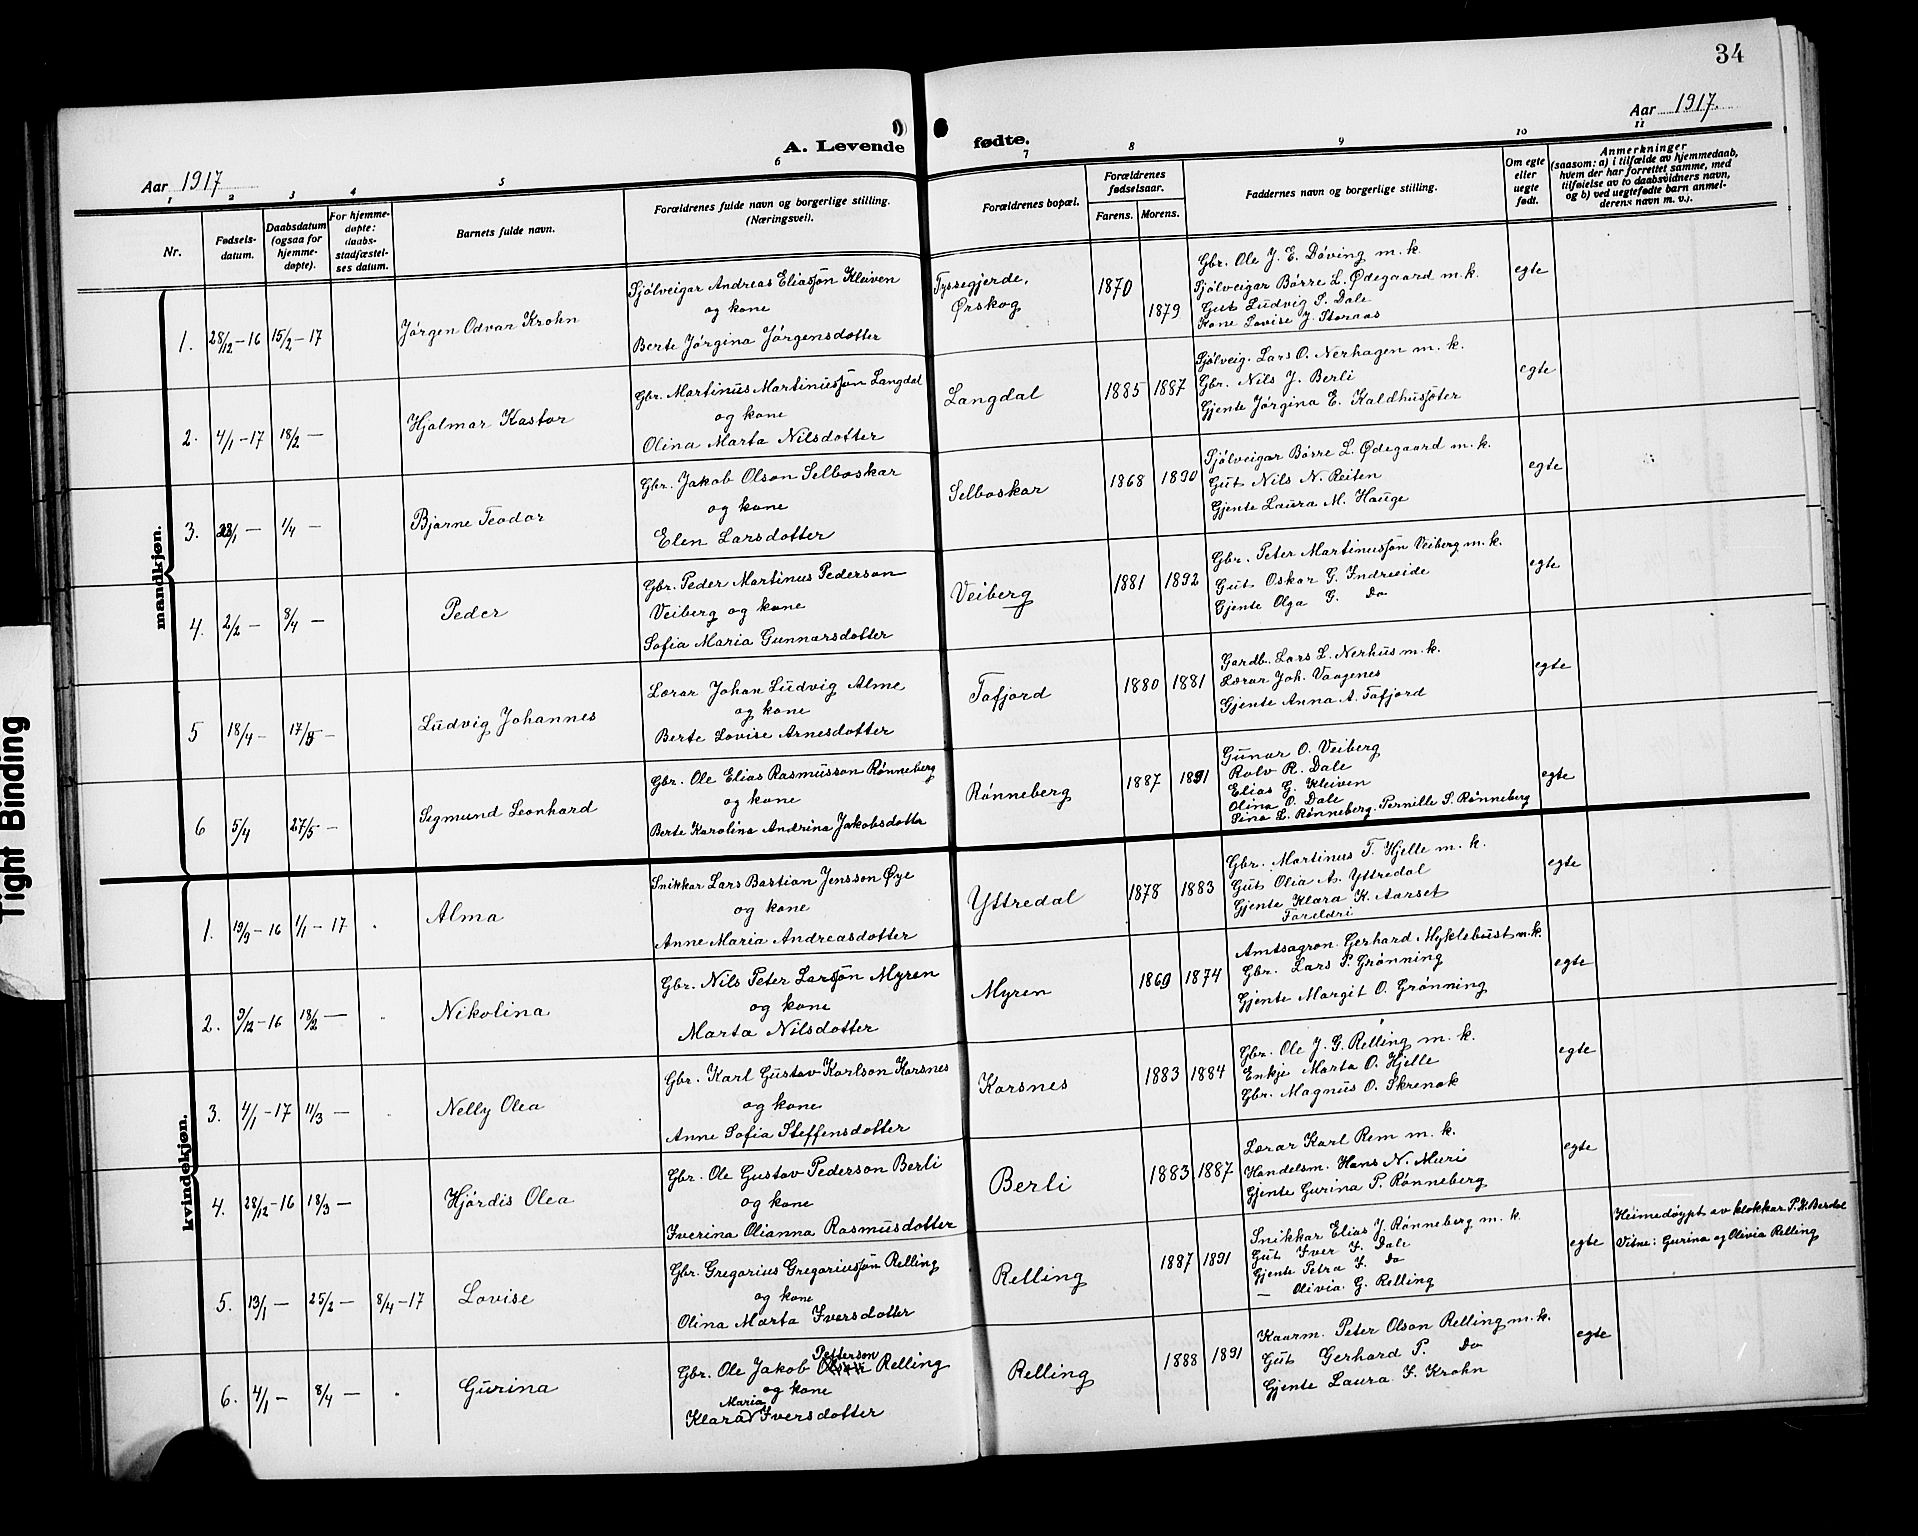 34
Aar 1917
A. Levende fødte.
Aar 1917.
1 2 3 4 5 6 7 8 9 10 11
Nr.
Fødsels-
datum.
Daabsdatum
(ogsaa for
hjemme-
døpte).
For hjemme-
døpte:
daabs-
stadfæstel-
ses datum.
Barnets fulde navn.
Forældrenes fulde navn og borgerlige stilling.
(Næringsvei).
Forældrenes bopæl.
Forældrenes
fødselsaar.
Farens. Morens.
Faddernes navn og borgerlige stilling.
Om egte
eller
uegte
født.
Anmerkninger
(saasom: a) i tilfælde av hjemmedaab,
hvem der har forrettet samme, med
tilføielse av to daabsvidners navn,
og b) ved uegtefødte barn anmel-
derens navn m. v.).
mandkjøn.
1. 28/12-16 15/2-17
Jørgen Odvar Krohn
Sjølveigar Andreas Eliassøn Kleiven
og kone
Berte Jørgina Jørgensdotter
Tyssegjerde,
Ørskog
1870 1879
Gbr. Ole J. E. Døving m. k.
Sjølveigar Børre L. Ødegaard m. k.
Gut Ludvig S. Dale
Kone Lovise J. Storaas
egte
2. 4/1-17 18/2 —
Hjalmar Kastor
Gbr. Martinus Martinussøn Langdal
og kone
Olina Marta Nilsdotter
Langdal
1885 1887
Sjølveig. Lars O. Nerhagen m. k.
Gbr. Nils J. Berli
Gjente Jørgina E. Kaldhussøter
egte
3. 28/1 — 1/4 —
Bjarne Teodor
Gbr. Jakob Olson Selboskar
og kone
Elen Larsdotter
Selboskar
1868 1890
Sjølveigar Børre L. Ødegaard m. k.
Gut Nils N. Reiten
Gjente Laura M. Hauge
egte
4. 2/2 — 8/4 —
Peder
Gbr. Peder Martinus Pederson
Veiberg og kone
Sofia Maria Gunnarsdotter
Veiberg
1881 1892
Gbr. Peter Martinussøn Veiberg m. k.
Gut Oskar G. Indreeide
Gjente Olga G. Do
egte
5 18/4 — 17/5 —
Ludvig Johannes
Lærar Johan Ludvig Alme
og kone
Berte Lovise Arnesdotter
Tafjord
1880 1881
Gardb. Lars L. Nerhus m. k.
Lærar Joh. Vaagenes
Gjente Anna A. Tafjord
egte
6 5/4 27/5 —
Sigmund Leonhard
Gbr. Ole Elias Rasmusson Rønneberg
og kone
Berte Karolina Andrina Jakobsdotter
Rønneberg
1887 1891
Gunar O. Veiberg
Rolv R. Dale
Elias G. Kleiven
Olina O. Dale
Sina L. Rønneberg. Pernille S. Rønneberg
egte
kvindekjøn.
1. 19/9-16 1/1-17
Alma
Snikkar Lars Bastian Jensson Øye
og kone
Anne Maria Andreasdotter
Yttredal
1878 1883
Gbr. Martinus T. Hjelle m. k.
Gut Olia A. Yttredal
Gjente Klara K. Aarset
Foreldri
egte
2. 9/12-16 18/2 —
Nikolina
Gbr. Nils Peter Larssøn Myren
og kone
Marta Nilsdotter
Myren
1869 1874
Amtsagron. Gerhard Myklebust m. k.
Gbr. Lars P. Grønning
Gjente Margit O. Grønning
egte
3. 4/1-17 11/3 —
Nelly Olea
Gbr. Karl Gustav Karlson Korsnes
og kone
Anne Sofia Steffensdotter
Korsnes
1883 1884
Gbr. Ole J. G. Relling m. k.
Enkje Marta O. Hjelle
Gbr. Magnus O. Skrenak
egte
4. 28/12-16 18/3 —
Hjørdis Olea
Gbr. Ole Gustav Pederson Berli
og kone
Iverina Olianna Rasmusdotter
Berli
1883 1887
Lærar Karl Rem m. k.
Handelsm. Hans N. Muri
Gjente Gurina P. Rønneberg
egte
5. 13/1 — 25/2 — 8/4-17
Lovise
Gbr. Gregorius Gregoriussøn Relling
og kone
Olina Marta Iversdotter
Relling
1887 1891
Snikkar Elias J. Rønneberg m. k.
Gut Iver I. Dale
Gjente Petra I. Do
— Olivia G. Relling
egte
Heimedøypt av klokkar P. K. Berdal
Vitne: Gurina og Olivia Relling
6. 4/1 — 8/4 —
Gurina
Petterson
Gbr. Ole Jakob Relling
og kone
Maria
Klara Iversdotter
Relling
1888 1891
Kaarm. Peter Olson Relling m. k.
Gut Gerhard P. Do
Gjente Laura I. Krohn
egte
Tight Binding